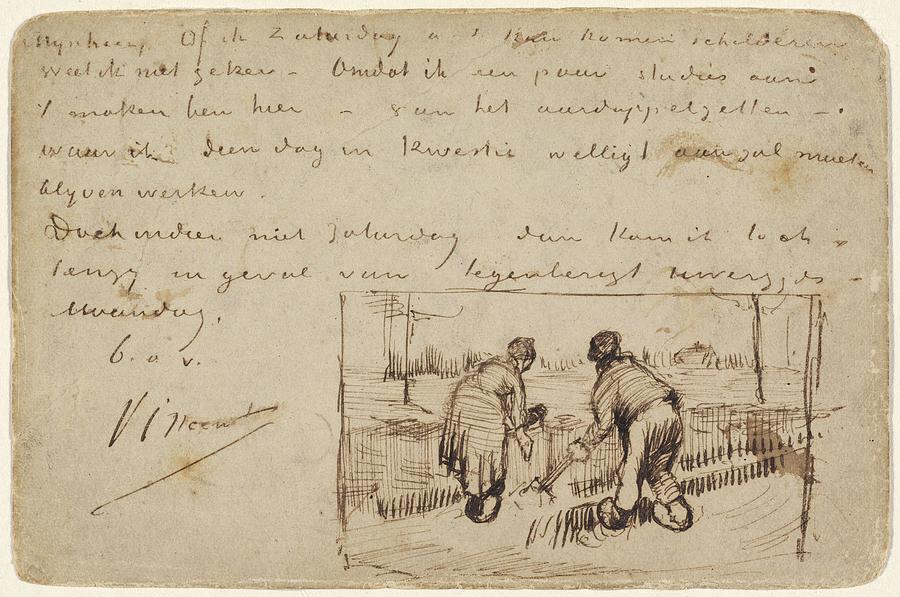 Mynheer, Of ik Zaturdag a s kan komen schilderen
weet ik niet zeker – Omdat ik een paar studies aan
't maken ben hier – van het aardappelzetten –
waar ik dien dag in kwestie welligt aan zal moeten
blyven werken.
Doch indien niet Zaturdag dan kom ik toch
tenzy in geval van tegenberigt Uwerzyds –
Maandag.
b. a v.
Vincent